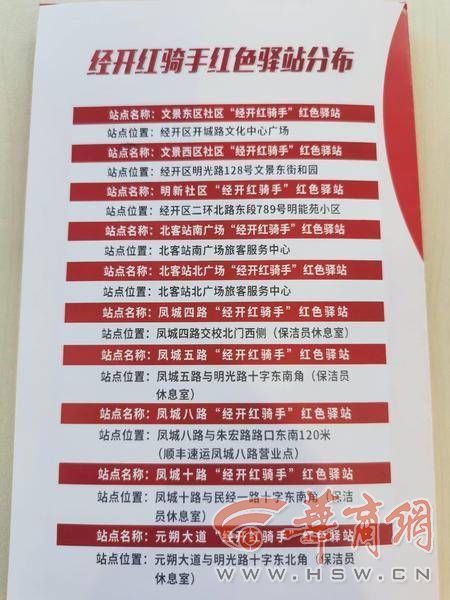 经开红骑手红色驿站分布
站点名称：文景东区社区“经开红骑手”红色驿站
站点位置：经开区开城路文化中心广场
站点名称：文景西区社区“经开红骑手”红色驿站
站点位置：经开区明光路128号文景东街和园
站点名称：明新社区“经开红骑手”红色驿站
站点位置：经开区二环北路东段789号明能苑小区
站点名称：北客站南广场“经开红骑手”红色驿站
站点位置：北客站南广场旅客服务中心
站点名称：北客站北广场“经开红骑手”红色驿站
站点位置：北客站北广场旅客服务中心
站点名称：凤城四路“经开红骑手”红色驿站
站点位置：凤城四路交校北门西侧（保洁员休息室）
站点名称：凤城五路“经开红骑手”红色驿站
站点位置：凤城五路与明光路十字东南角（保洁员
休息室）
站点名称：凤城八路“经开红骑手”红色驿站
站点位置：凤城八路与朱宏路路口东南120米
（顺丰速运凤城八路营业点）
站点名称：凤城十路“经开红骑手”红色驿站
站点位置：凤城十路与民经一路十字东南角（保洁
员休息室）
站点名称：元朔大道“经开红骑手”红色驿站
站点位置：元朔大道与明光路十字东北角（保洁员
休息室）
华商网
WWW.HSW.CN